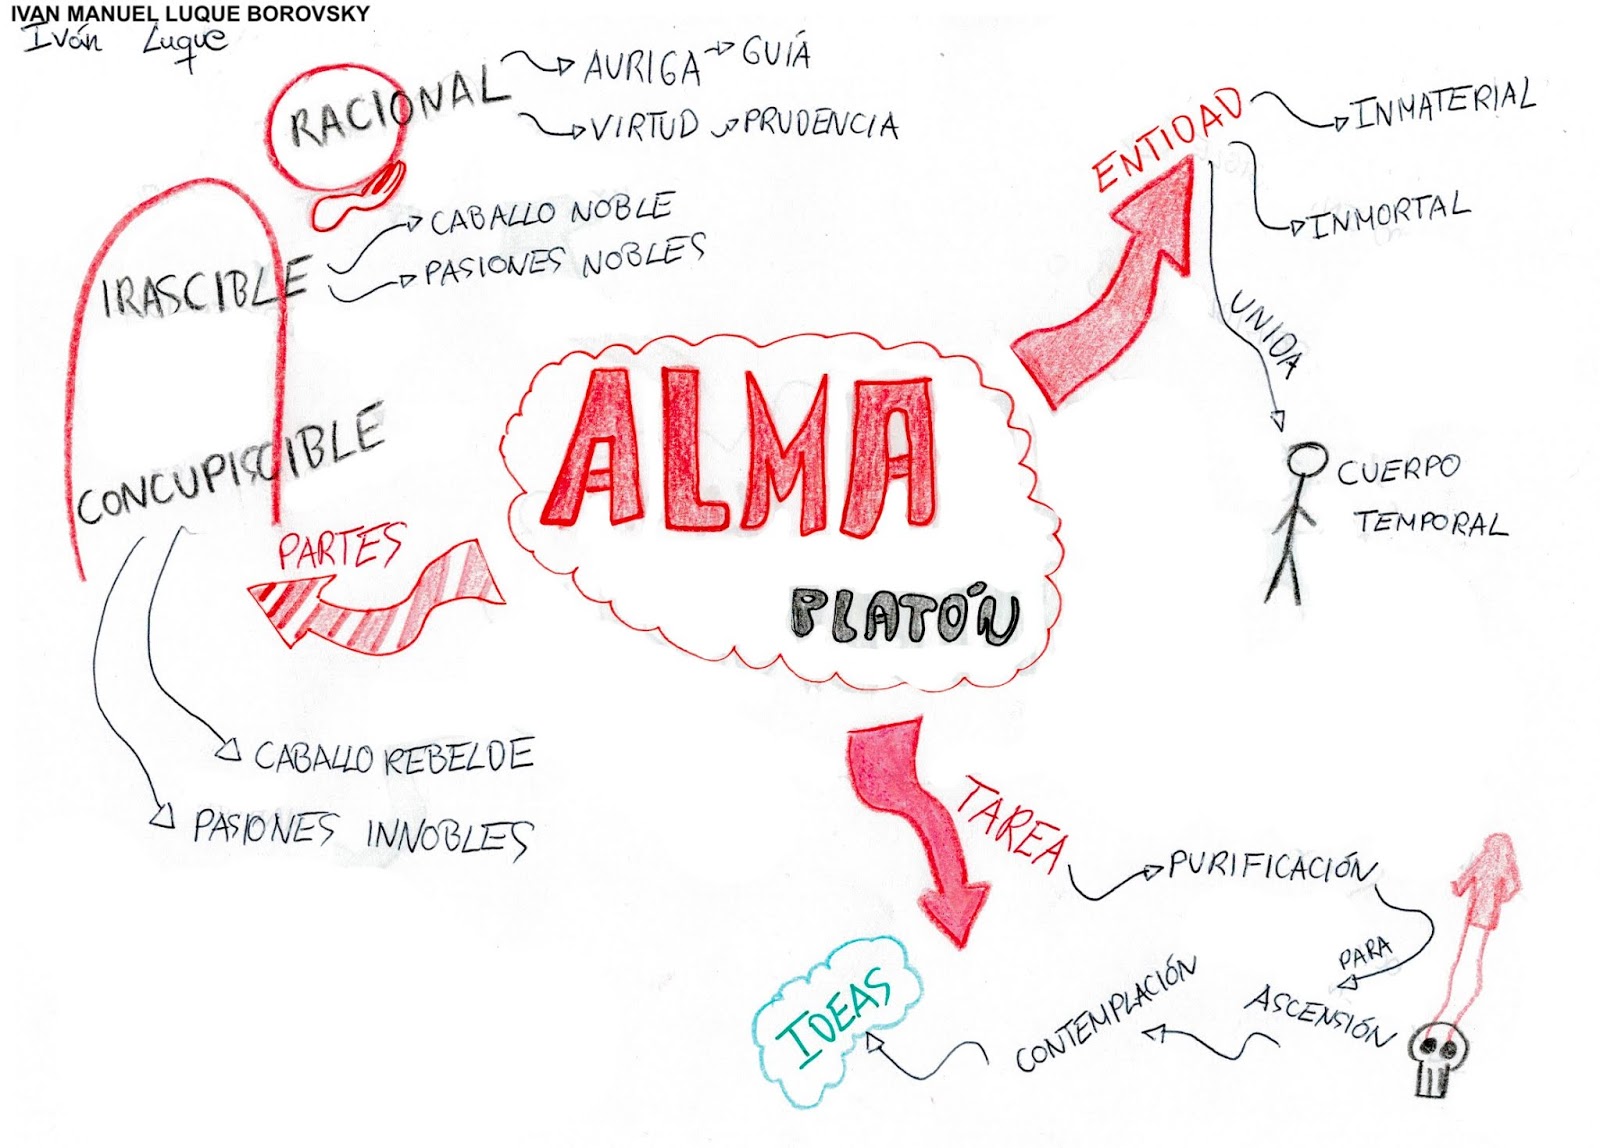 IVAN MANUEL LUQUE BOROVSKY
Iván Luque
RACIONAL
AURIGA GUÍA
VIRTUD PRUDENCIA
IRASCIBLE
CABALLO NOBLE
PASIONES NOBLES
CONCUPISCIBLE
PARTES
CABALLO REBELDE
PASIONES INNOBLES
ALMA
PLATÓN
ENTIDAD
INMATERIAL
INMORTAL
UNIDA
CUERPO
TEMPORAL
TAREA
PURIFICACIÓN
PARA
ASCENSIÓN
CONTEMPLACIÓN
IDEAS